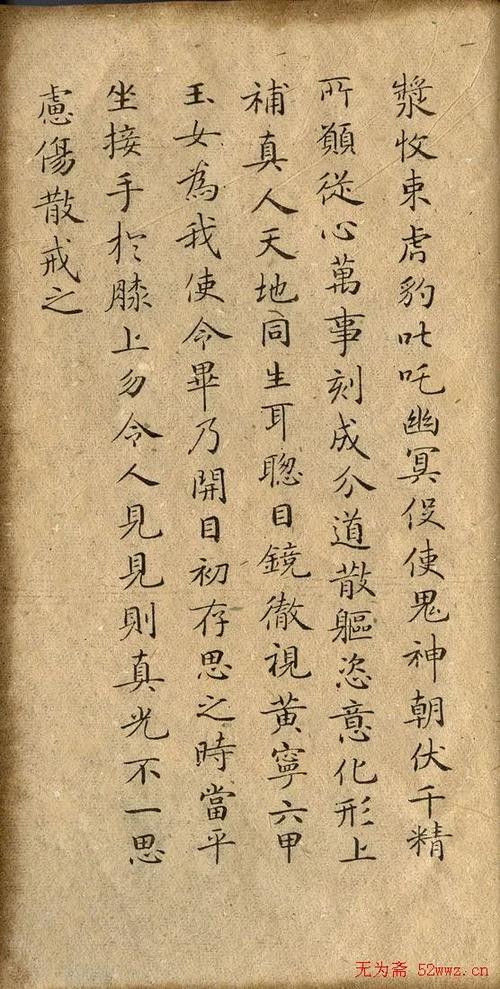 漿攸束虎豹叱吒幽冥役使鬼神朝伏千精
所願從心萬事剋成分道散軀恣意化形上
補真人天地同生耳聰目鏡徹視黃寧六甲
玉女為我使令畢乃開目初存思之時當平
坐接手於膝上勿令人見見則真光不一思
慮傷散戒之
无为斋 52wwz.cn